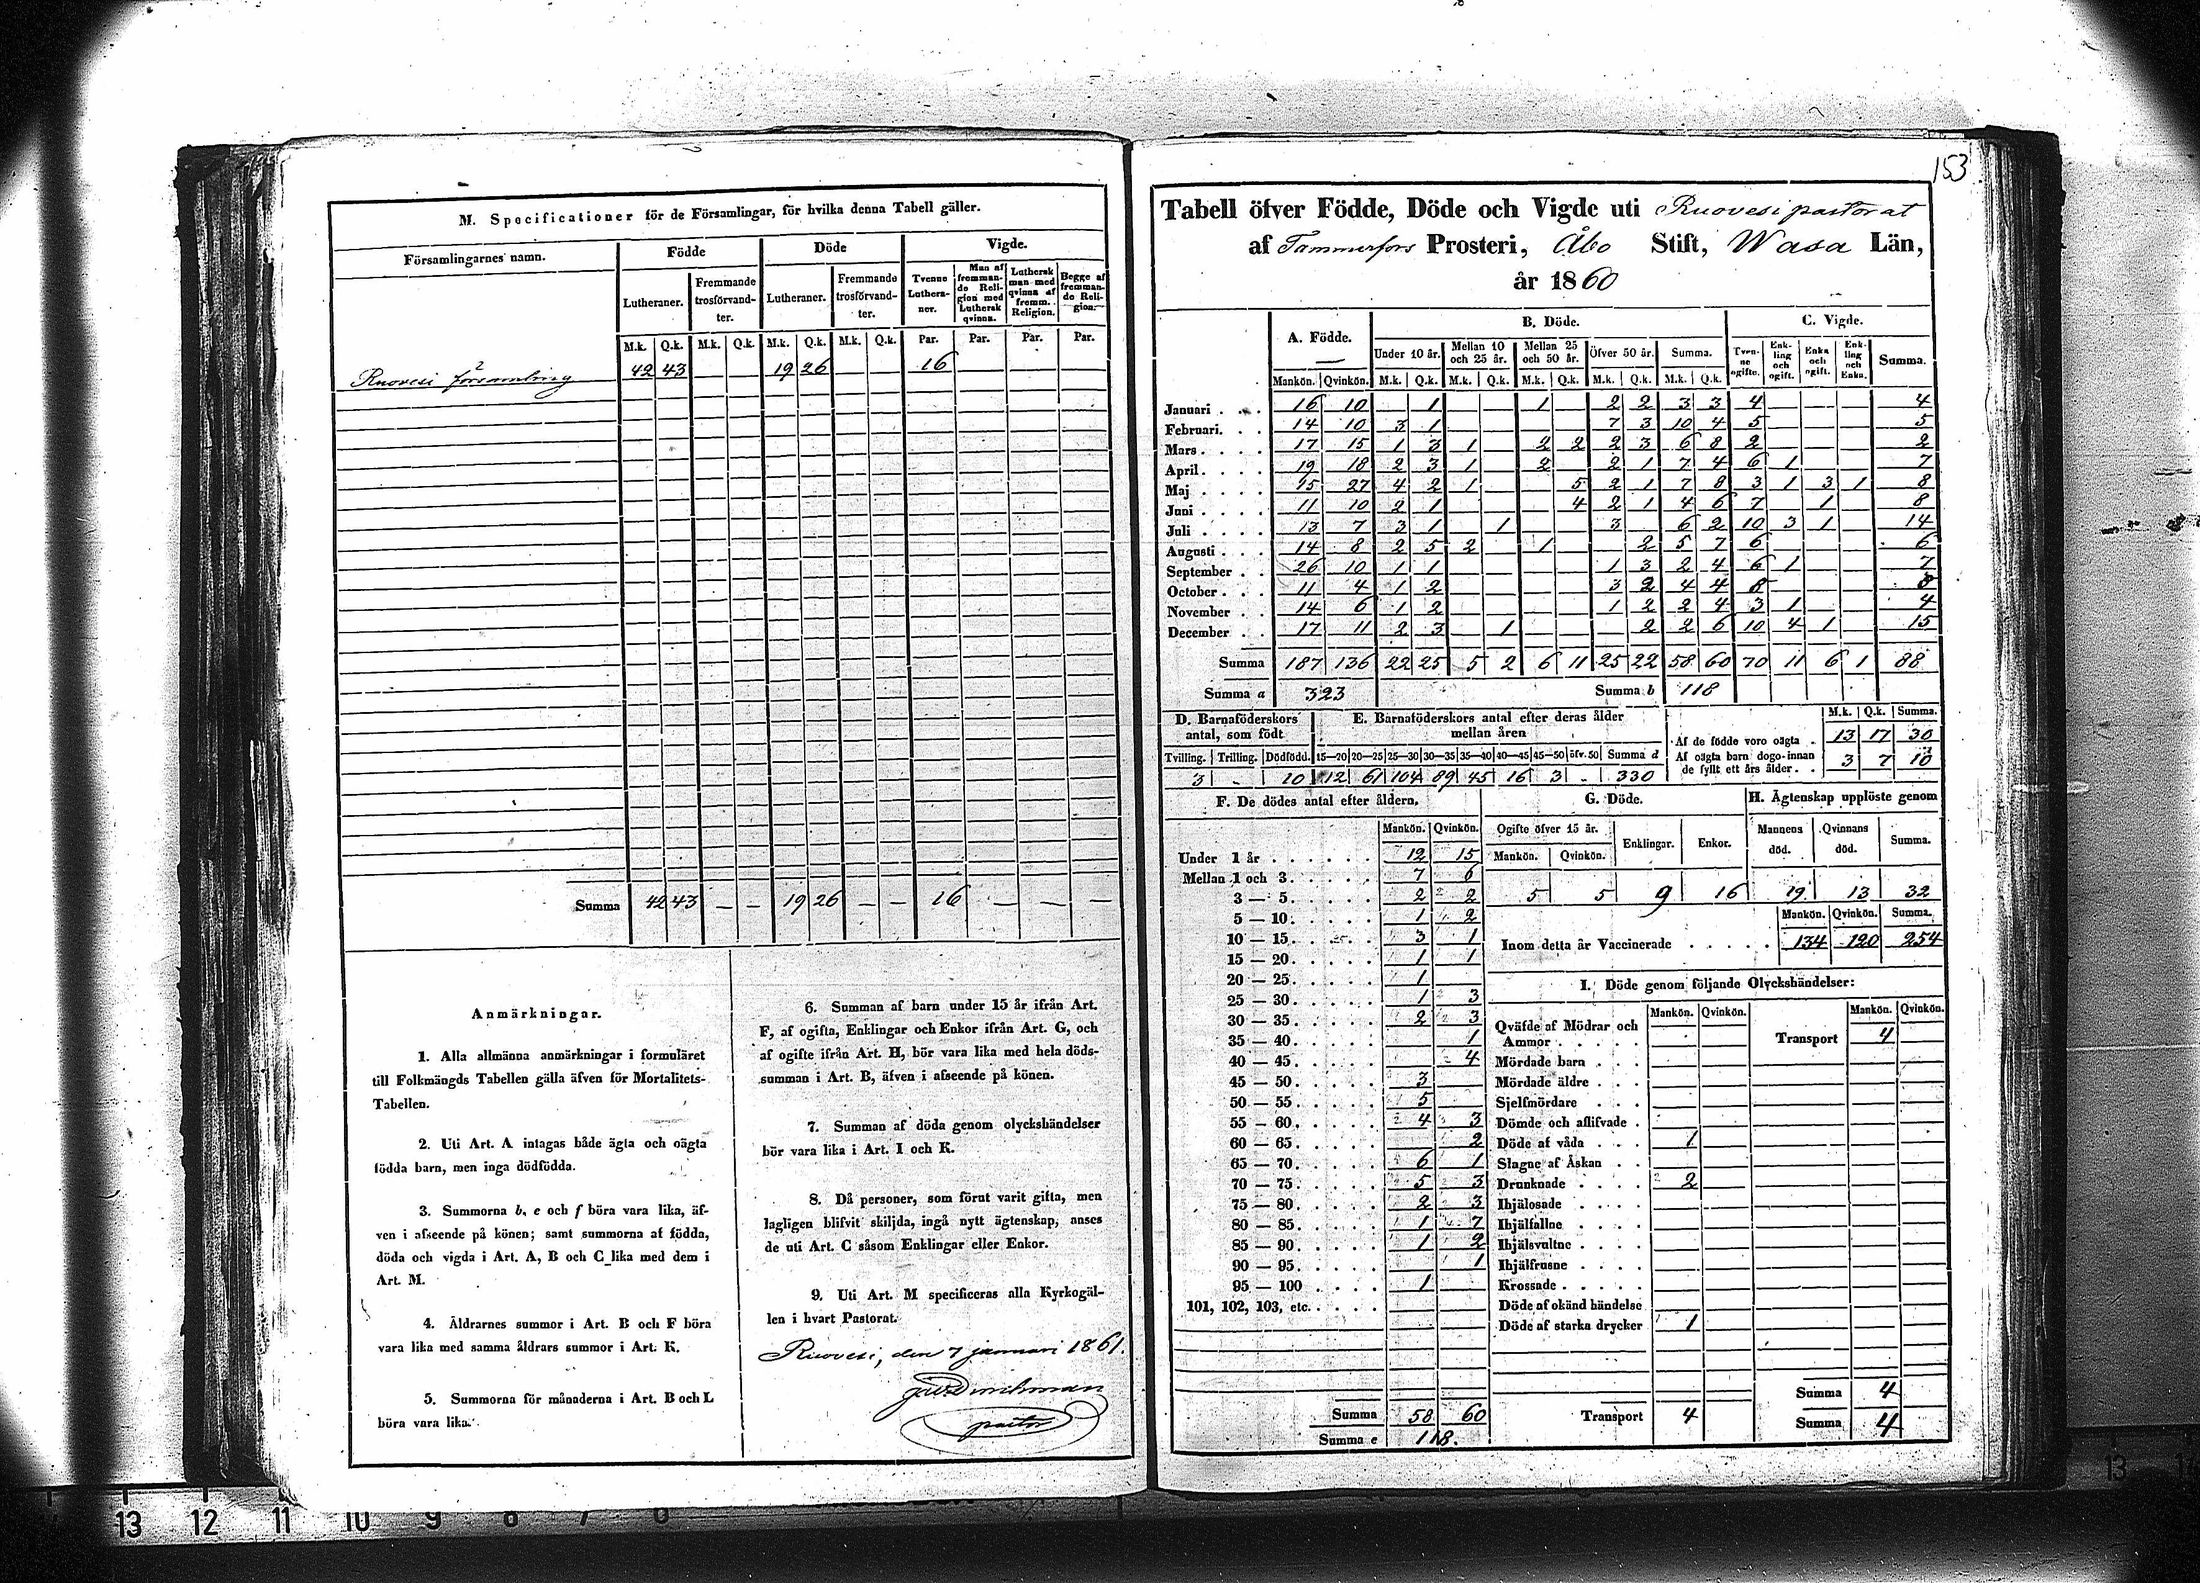 M. Specificationer för de Församlingar, för hvilka denna Tabell gäller.
Församlingarnes namn. Födde Döde Vigde.
Lutheraner. Fremmande trosförvandter. Lutheraner. Fremmande trosförvandter. Tvenne Lutheraner. Man af fremmande Religion med Luthersk qvinna. Luthersk man med qvinna af fremm. Religion. Begge af fremmande Religion.
M.k. Q.k. M.k. Q.k. M.k. Q.k. M.k. Q.k. Par. Par. Par. Par.
Ruovesi församling 42 43 19 26 16
Summa 42 43 — — 19 26 — — 16 — — —
Anmärkningar.
1. Alla allmänna anmärkningar i formuläret
till Folkmängds Tabellen gälla äfven för Mortalitets-
Tabellen.
2. Uti Art. A intagas både ägta och oägta
födda barn, men inga dödfödda.
3. Summorna b, e och f böra vara lika, äf-
ven i afseende på könen; samt summorna af födda,
döda och vigda i Art. A, B och C lika med dem i
Art. M.
4. Åldrarnes summor i Art. B och F böra
vara lika med samma åldrars summor i Art. K.
5. Summorna för månaderna i Art. B och L
böra vara lika.
6. Summan af barn under 15 år ifrån Art.
F, af ogifta, Enklingar och Enkor ifrån Art. G, och
af ogifte ifrån Art. H, bör vara lika med hela döds-
summan i Art. B, äfven i afseende på könen.
7. Summan af döda genom olyckshändelser
bör vara lika i Art. I och K.
8. Då personer, som förut varit gifta, men
lagligen blifvit skiljda, ingå nytt ägtenskap, anses
de uti Art. C såsom Enklingar eller Enkor.
9. Uti Art. M specificeras alla Kyrkogäl-
len i hvart Pastorat.
Ruovesi, den 7 januari 1861.
pastor
153
Tabell öfver Födde, Döde och Vigde uti Ruovesi pastorat
af Tammerfors Prosteri, Åbo Stift, Wasa Län,
år 1860
A. Födde. B. Döde. C. Vigde.
Under 10 år. Mellan 10 och 25 år. Mellan 25 och 50 år. Öfver 50 år. Summa. Tvenne ogifte. Enkling och ogift. Enka och ogift. Enkling och Enka. Summa.
Mankön. Qvinkön. M.k. Q.k. M.k. Q.k. M.k. Q.k. M.k. Q.k. M.k. Q.k.
Januari 16 10 1 1 2 2 3 3 4 4
Februari. 14 10 3 1 7 3 10 4 5 5
Mars 17 15 1 3 1 2 2 2 3 6 8 2 2
April 19 18 2 3 1 2 2 1 7 4 6 1 7
Maj 15 27 4 2 1 5 2 1 7 8 3 1 3 1 8
Juni 11 10 2 1 4 2 1 4 6 7 1 8
Juli 13 7 3 1 1 3 6 2 10 3 1 14
Augusti 14 8 2 5 2 1 2 5 7 6 6
September 26 10 1 1 1 3 2 4 6 1 7
October 11 4 1 2 3 2 4 4 8 8
November 14 6 1 2 1 2 2 4 3 1 4
December 17 11 2 3 1 2 2 6 10 4 1 15
Summa 187 136 22 25 5 2 6 11 25 22 58 60 70 11 6 1 88
Summa a 323 Summa b 118
D. Barnaföderskors antal, som födt
Tvilling. Trilling. Dödfödd.
3 - 10
E. Barnaföderskors antal efter deras ålder mellan åren
15—20 20—25 25—30 30—35 35—40 40—45 45—50 öfv. 50 Summa d
12 61 104 89 45 16 3 - 330
M.k. Q.k. Summa.
Af de födde voro oägta 13 17 30
Af oägta barn dogo innan de fyllt ett års ålder 3 7 10
F. De dödes antal efter åldern.
Mankön. Qvinkön.
Under 1 år 12 15
Mellan 1 och 3. 7 6
3 — 5. 2 2
5 — 10. 1 2
10 — 15. 3 1
15 — 20. 1 1
20 — 25. 1
25 — 30. 1 3
30 — 35. 2 3
35 — 40. 1
40 — 45. 4
45 — 50. 3
50 — 55. 5
55 — 60. 4 3
60 — 65. 2
65 — 70. 6 1
70 — 75. 5 3
75 — 80. 2 3
80 — 85. 1 7
85 — 90. 1 2
90 — 95. 1
95 — 100 1
101, 102, 103, etc.
Summa 58 60
Summa e 118.
G. Döde.
Ogifte öfver 15 år. Enklingar. Enkor.
Mankön. Qvinkön.
5 5 9 16
H. Ägtenskap upplöste genom
Mannens död. Qvinnans död. Summa.
19 13 32
Mankön. Qvinkön. Summa.
Inom detta år Vaccinerade 134 120 254
I. Döde genom följande Olyckshändelser:
Mankön. Qvinkön. Mankön. Qvinkön.
Qväfde af Mödrar och Ammor Transport 4
Mördade barn
Mördade äldre
Sjelfmördare
Dömde och aflifvade
Döde af våda 1
Slagne af Åskan
Drunknade 2
Ihjälosade
Ihjälfallne
Ihjälsvultne
Ihjälfrusne
Krossade
Döde af okänd händelse
Döde af starka drycker 1
Summa 4
Transport 4 Summa 4
13 12 11 10 9 8 7 6
13